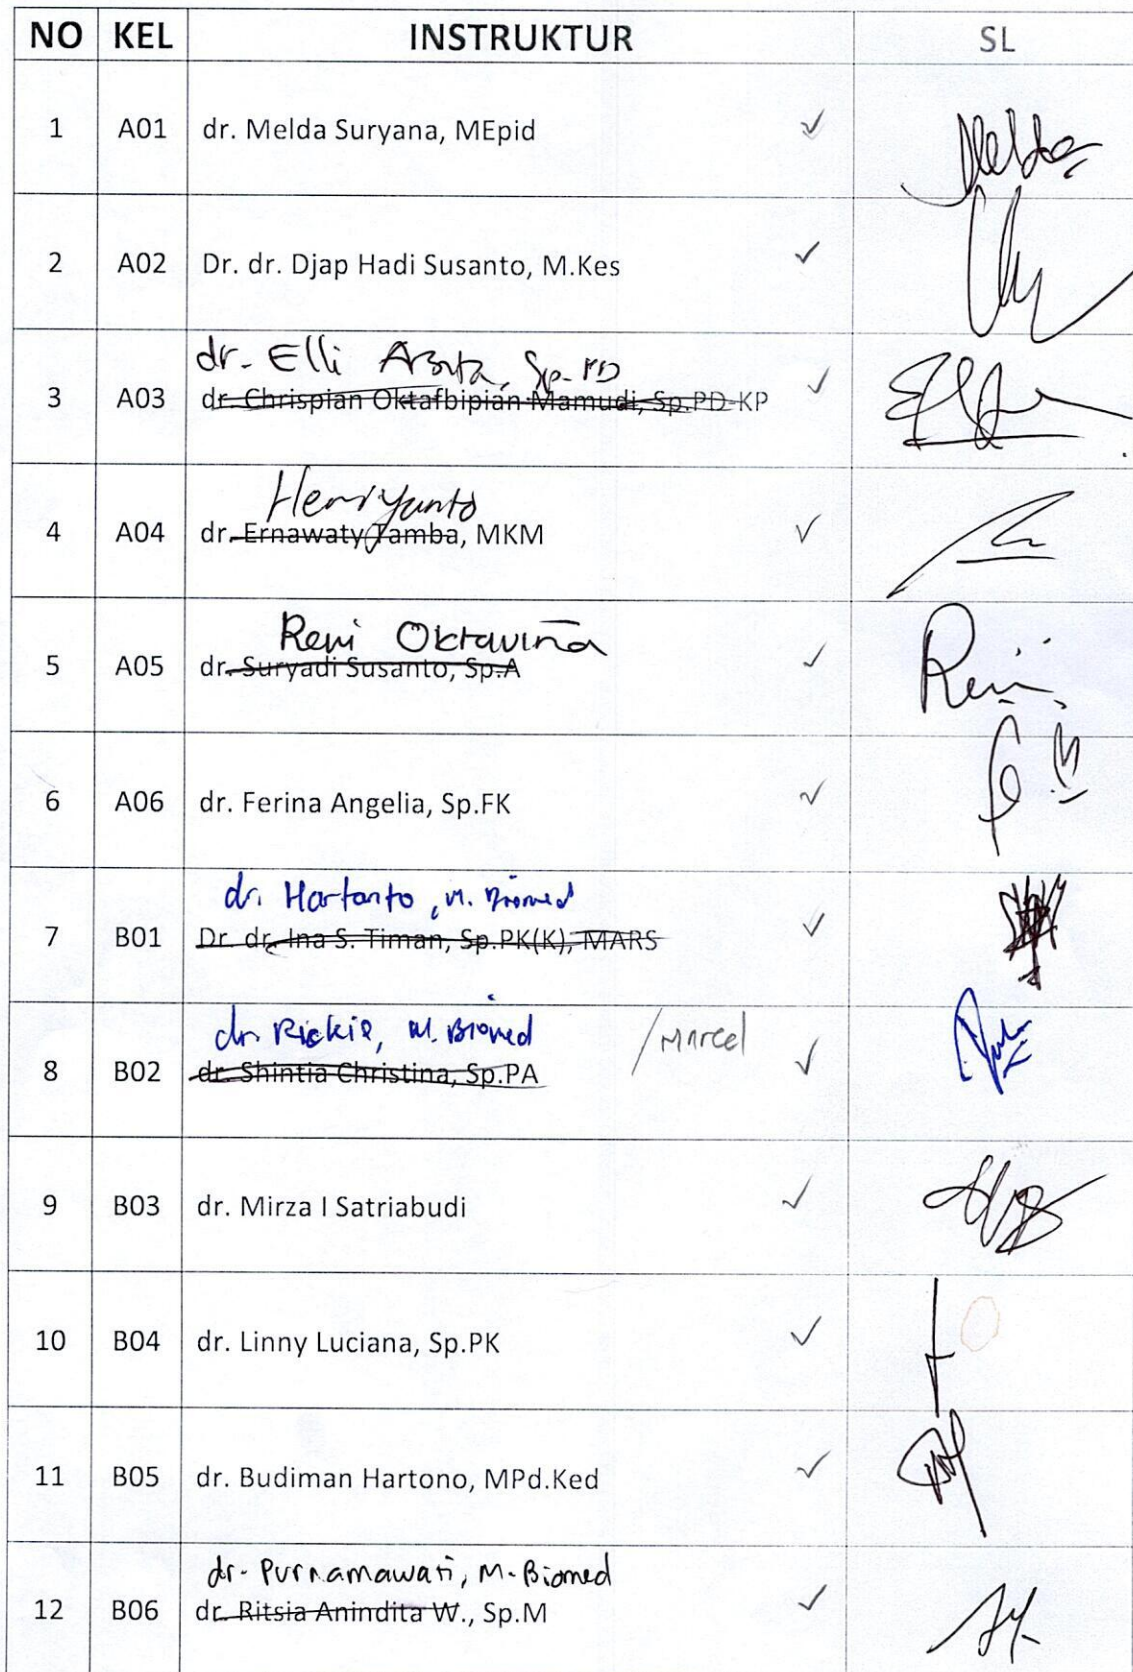 NO KEL INSTRUKTUR SL
1 A01 dr. Melda Suryana, MEpid ✓ Melda
2 A02 Dr. dr. Djap Hadi Susanto, M.Kes ✓
dr. Elli Arsita, Sp.PD
3 A03 dr. Chrispian Oktafbipian Mamudi, Sp.PD-KP ✓
Henriyanto
4 A04 dr. Ernawaty Tamba, MKM ✓
Reni Oktaviña
5 A05 dr. Suryadi Susanto, Sp.A ✓ Reni
6 A06 dr. Ferina Angelia, Sp.FK ✓
dr. Hartanto, M. Biomed
7 B01 Dr. dr. Ina S. Timan, Sp.PK(K), MARS ✓
dr. Rickie, M. Biomed / Marcel
8 B02 dr. Shintia Christina, Sp.PA ✓
9 B03 dr. Mirza I Satriabudi ✓
10 B04 dr. Linny Luciana, Sp.PK ✓
11 B05 dr. Budiman Hartono, MPd.Ked ✓
dr. Purnamawati, M. Biomed
12 B06 dr. Ritsia Anindita W., Sp.M ✓